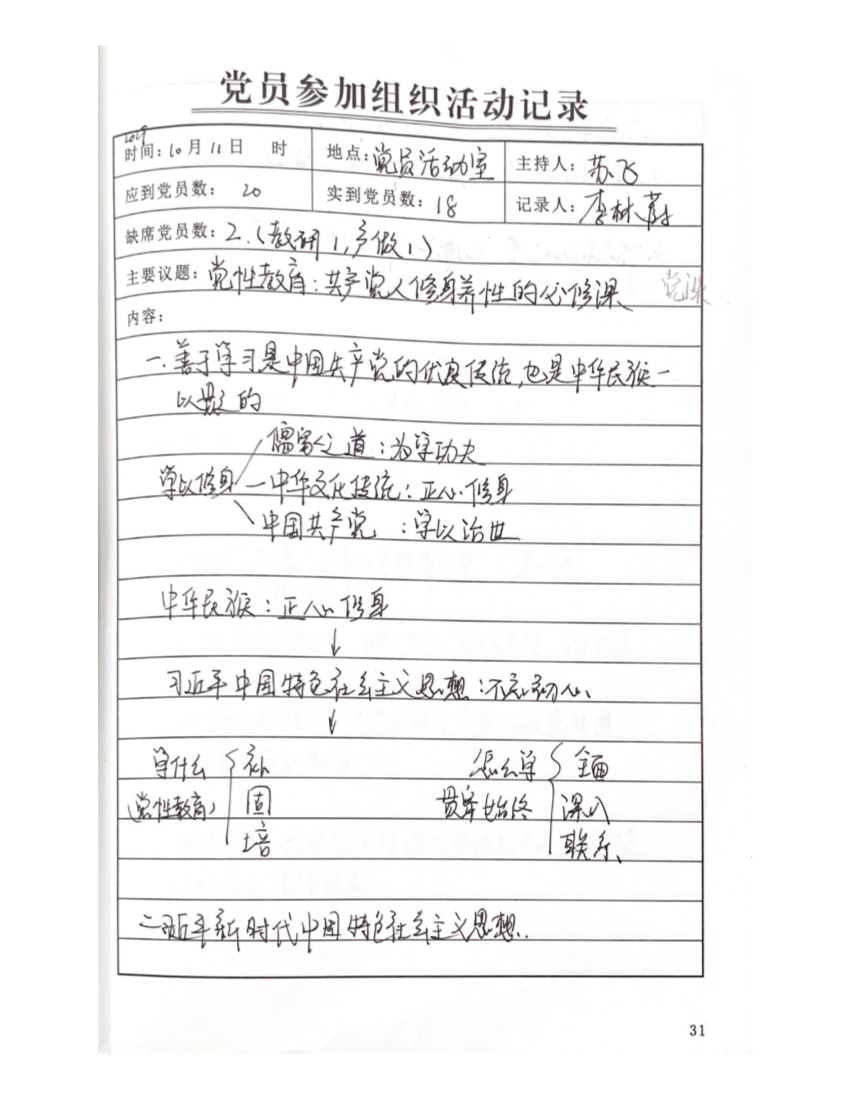 党员参加组织活动记录
2019
时间：10月11日 时 地点：党员活动室 主持人：苏飞
应到党员数：20 实到党员数：18 记录人：李林蔚
缺席党员数：2.（教研1，产假1）
主要议题：党性教育：共产党人修身养性的必修课 党课
内容：
一.善于学习是中国共产党的优良传统，也是中华民族一
以贯之的
儒家之道：为学功夫
学以修身 — 中华文化传统：正心修身
中国共产党 ：学以治世
中华民族：正心修身
↓
习近平中国特色社会主义思想：不忘初心、
↓
学什么 补 怎么学 全面
（党性教育） 固 贯穿始终 深入
培 联系、
二.习近平新时代中国特色社会主义思想.
31